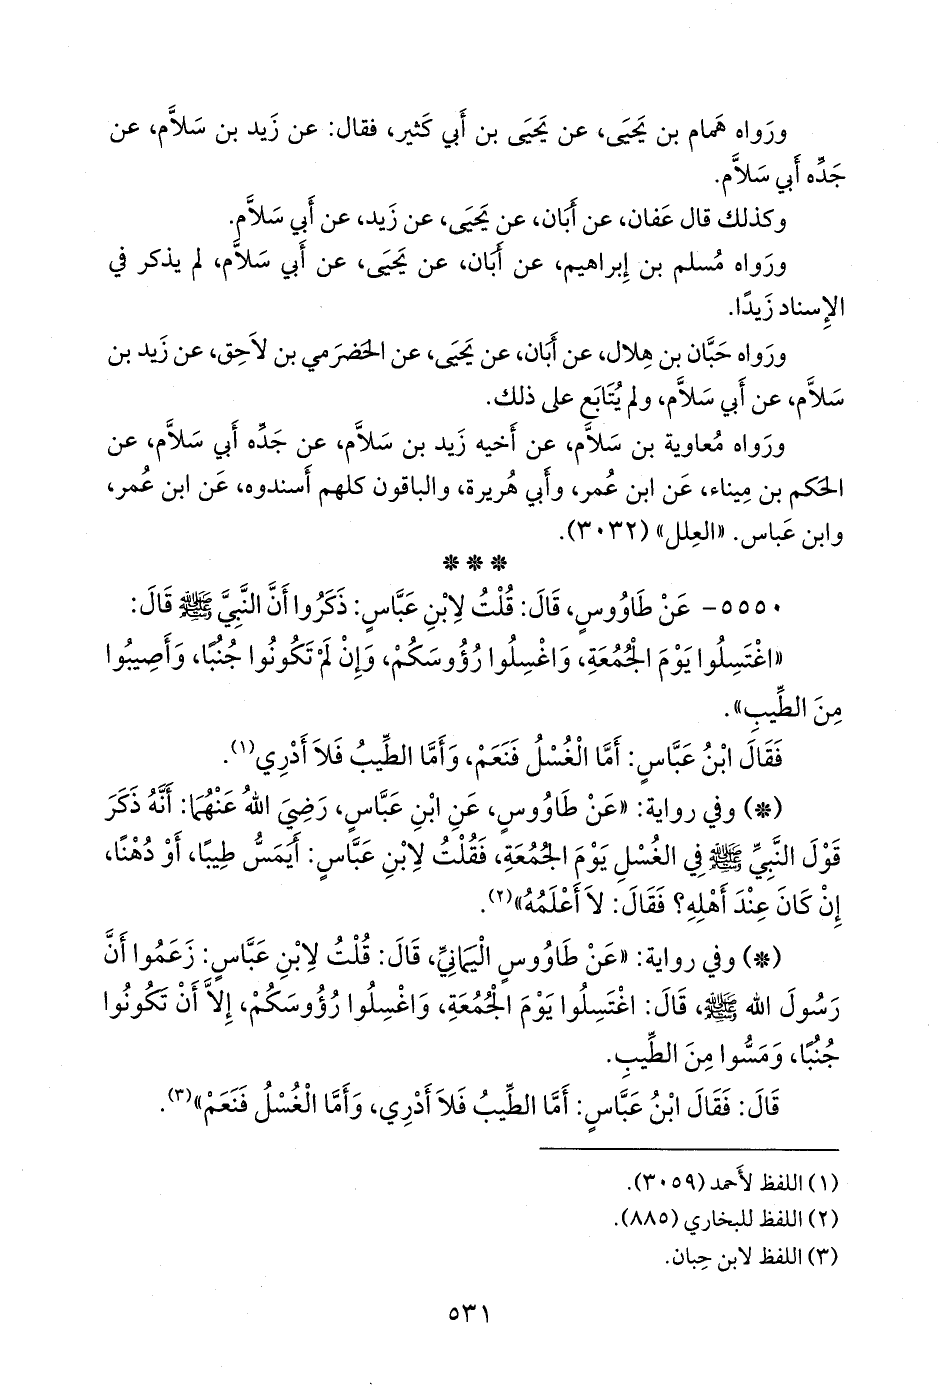 ورَواه هَمام بن يَحيَى، عن يَحيَى بن أَبي كَثير، فقال: عن زَيد بن سَلاَّم، عن
جَدِّه أَبي سَلاَّم.
وكذلك قال عَفان، عن أَبَان، عن يَحيَى، عن زَيد، عن أَبي سَلاَّم.
ورَواه مُسلم بن إِبراهيم، عن أَبَان، عن يَحيَى، عن أَبي سَلاَّم، لم يذكر في
الإِسناد زَيدًا.
ورَواه حَبَّان بن هِلال، عن أَبَان، عن يَحيَى، عن الحَضرَمي بن لاَحِق، عن زَيد بن
سَلاَّم، عن أَبي سَلاَّم، ولم يُتَابَع على ذلك.
ورَواه مُعاوية بن سَلاَّم، عن أَخيه زَيد بن سَلاَّم، عن جَدِّه أَبي سَلاَّم، عن
الحَكم بن مِيناء، عَن ابن عُمر، وأَبي هُريرة، والباقون كلهم أَسندوه، عَن ابن عُمر،
وابن عَباس. «العِلل» (٣٠٣٢).
***
٥٥٥٠- عَنْ طَاوُوسٍ، قَالَ: قُلْتُ لاِبْنِ عَبَّاسٍ: ذَكَرُوا أَنَّ النَّبِيَّ ﷺ قَالَ:
«اغْتَسِلُوا يَوْمَ الْجُمُعَةِ، وَاغْسِلُوا رُؤُوسَكُمْ، وَإِنْ لَمْ تَكُونُوا جُنُبًا، وَأَصِيبُوا
مِنَ الطِّيبِ».
فَقَالَ ابْنُ عَبَّاسٍ: أَمَّا الْغُسْلُ فَنَعَمْ، وَأَمَّا الطِّيبُ فَلاَ أَدْرِي(١).
(*) وفي رواية: «عَنْ طَاوُوسٍ، عَنِ ابْنِ عَبَّاسٍ، رَضِيَ اللهُ عَنْهُمَا: أَنَّهُ ذَكَرَ
قَوْلَ النَّبِيِّ ﷺ فِي الْغُسْلِ يَوْمَ الْجُمُعَةِ، فَقُلْتُ لاِبْنِ عَبَّاسٍ: أَيَمَسُّ طِيبًا، أَوْ دُهْنًا،
إِنْ كَانَ عِنْدَ أَهْلِهِ؟ فَقَالَ: لاَ أَعْلَمُهُ»(٢).
(*) وفي رواية: «عَنْ طَاوُوسٍ الْيَمَانِيِّ، قَالَ: قُلْتُ لاِبْنِ عَبَّاسٍ: زَعَمُوا أَنَّ
رَسُولَ الله ﷺ، قَالَ: اغْتَسِلُوا يَوْمَ الْجُمُعَةِ، وَاغْسِلُوا رُؤُوسَكُمْ، إِلاَّ أَنْ تَكُونُوا
جُنُبًا، وَمَسُّوا مِنَ الطِّيبِ.
قَالَ: فَقَالَ ابْنُ عَبَّاسٍ: أَمَّا الطِّيبُ فَلاَ أَدْرِي، وَأَمَّا الْغُسْلُ فَنَعَمْ»(٣).
(١) اللفظ لأَحمد (٣٠٥٩).
(٢) اللفظ للبخاري (٨٨٥).
(٣) اللفظ لابن حِبان.
٥٣١